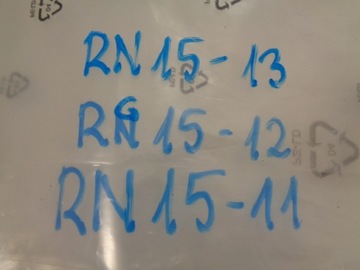 RN 15-13
RG 15-12
RN 15-11